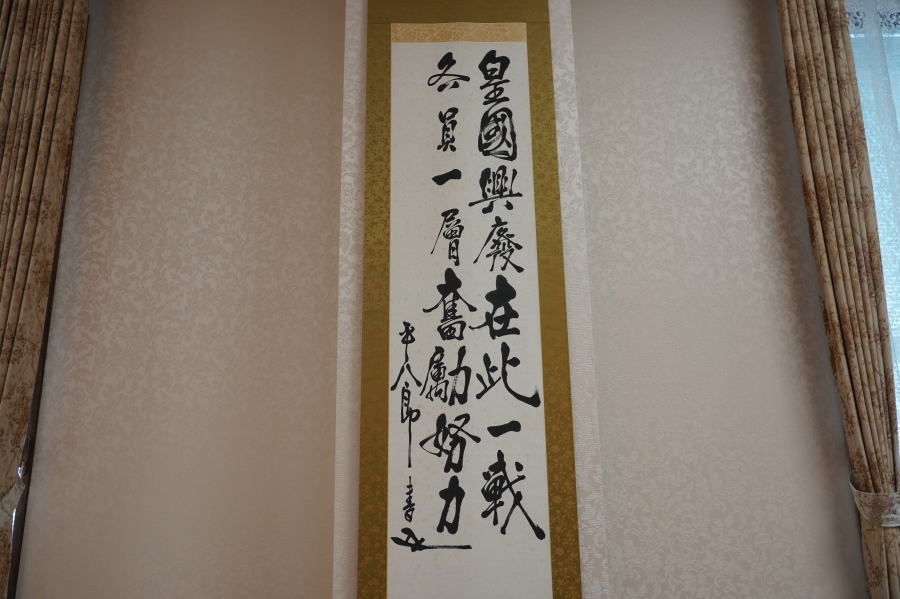 皇國興廢在此一戰
各員一層奮勵努力
半八郎書